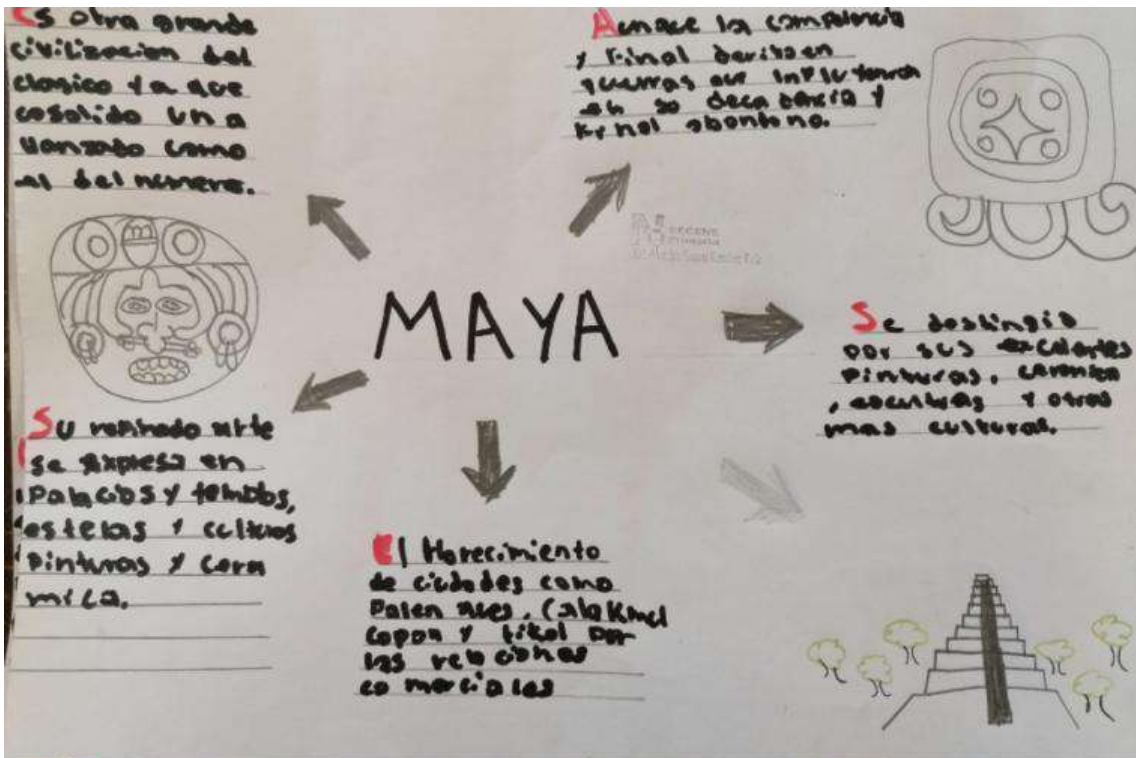 Es otra grande
civilizacion del
clasico ya que
cosolido un a
vanzado como
el del numere.
Aunque la competencia
y Final
guerras que
en su decadencia y
abontono.
MAYA
Se destingio
por sus
Pinturas, ceramica
, y otras
mas culturas.
Su refinado arte
se expresa en
Palacios y templos,
estelas y
Pinturas y cera
mica.
El Florecimiento
de ciudades como
Palen ques, Calakmul
copan y tikal por
las relaciones
comerciales